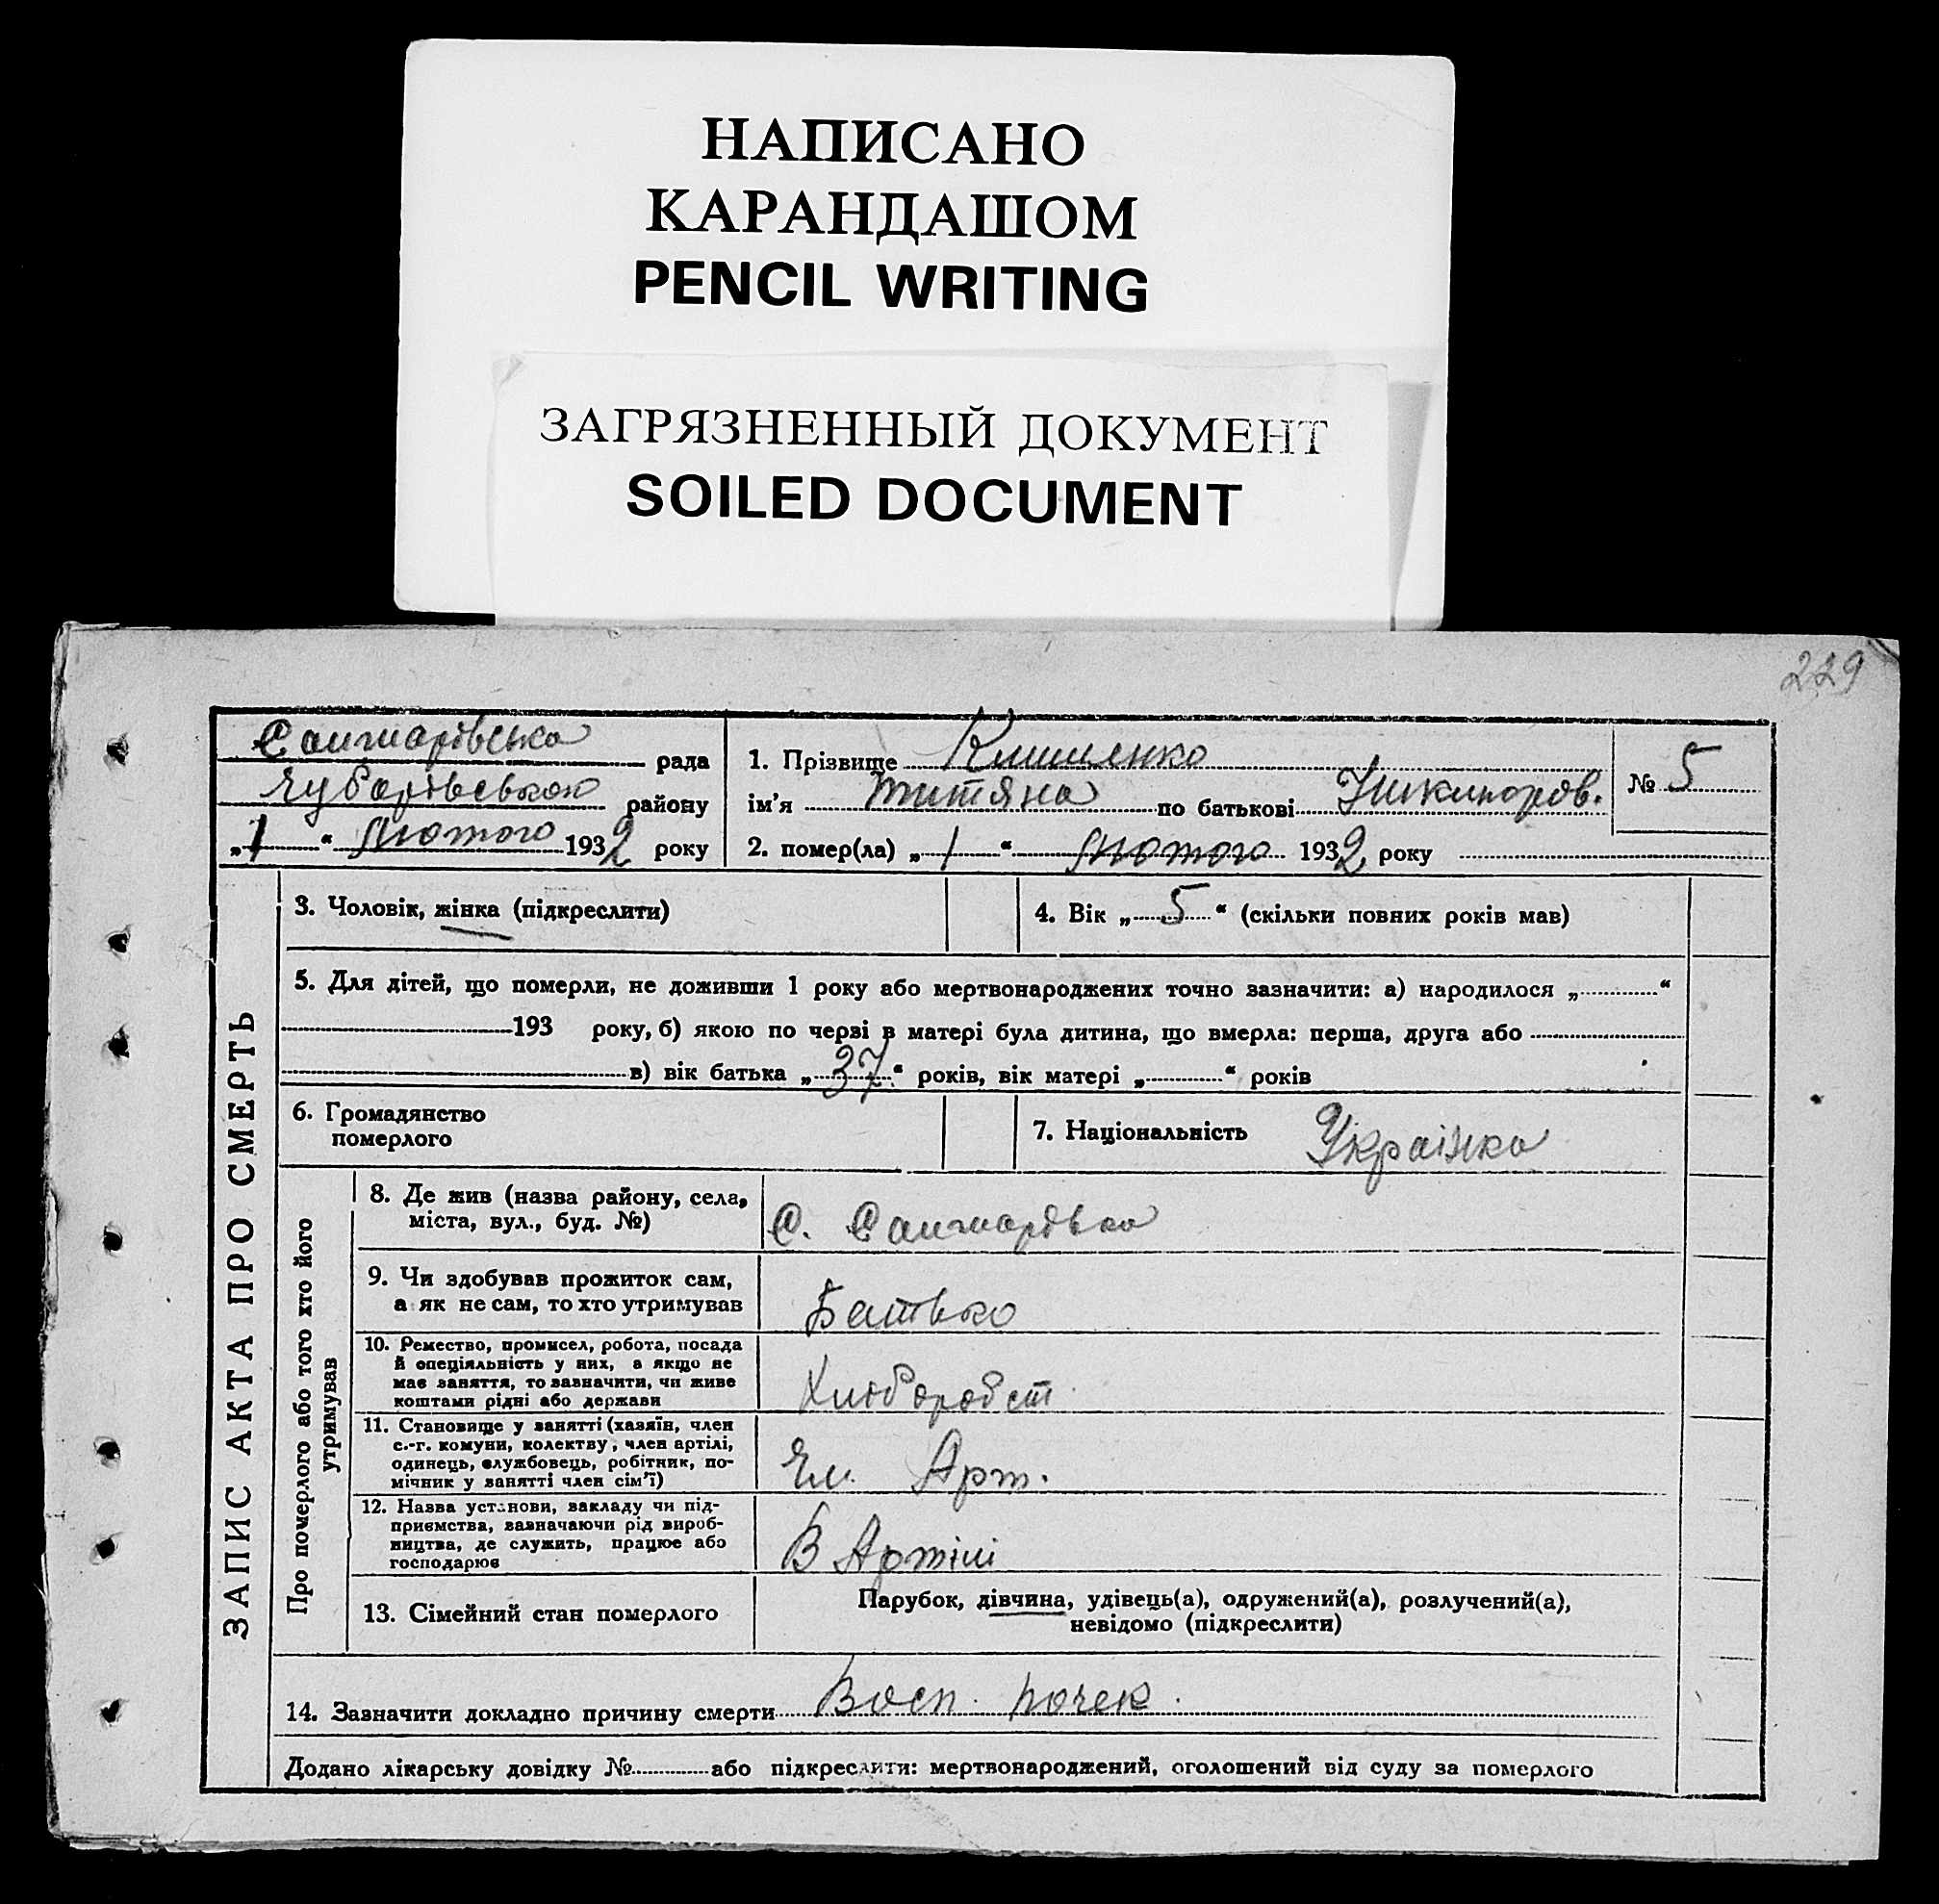 НАПИСАНО
КАРАНДАШОМ
PENCIL WRITING
ЗАГРЯЗНЕННЫЙ ДОКУМЕНТ
SOILED DOCUMENT
229
рада
Чубарівською району
„1“ лютого 1932 року
1. Прізвище
№ 5
ім'я Титяна по батькові Никипоров.
2. помер(ла) „1“ лютого 1932 року
ЗАПИС АКТА ПРО СМЕРТЬ
3. Чоловік, жінка (підкреслити)
4. Вік „5“ (скільки повних років мав)
5. Для дітей, що померли, не доживши 1 року або мертвонароджених точно зазначити: а) народилося „ “
193 року, б) якою по черзі в матері була дитина, що вмерла: перша, друга або
в) вік батька „37“ років, вік матері „ “ років
6. Громадянство
померлого
7. Національність Українка
Про померлого або того хто його
утримував
8. Де жив (назва району, села,
міста, вул., буд. №)
С. Санжарівка
9. Чи здобував прожиток сам,
а як не сам, то хто утримував
Батько
10. Ремество, промисел, робота, посада
й спеціяльність у них, а якщо не
має заняття, то зазначити, чи живе
коштами рідні або держави
11. Становище у занятті (хазяїн, член
с.-г. комуни, колектву, член артілі,
одинець, службовець, робітник, по-
мічник у занятті член сім'ї)
Чл. Арт.
12. Назва установи, закладу чи під-
приємства, зазначаючи рід вироб-
ництва, де служить, працює або
господарює
В Артілі
13. Сімейний стан померлого
Парубок, дівчина, удівець(а), одружений(а), розлучений(а),
невідомо (підкреслити)
14. Зазначити докладно причину смерти Восп. почек.
Додано лікарську довідку № або підкреслити: мертвонароджений, оголошений від суду за померлого